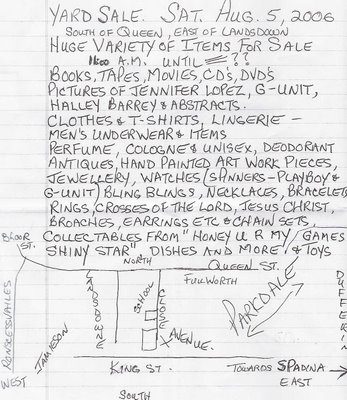 YARD SALE. SAT. AUG. 5, 2006
SOUTH OF QUEEN, EAST OF LANDSDOWN
HUGE VARIETY OF ITEMS FOR SALE
11:00 A.M. UNTIL = ??
BOOKS, TAPES, MOVIES, CD'S, DVD'S
PICTURES OF JENNIFER LOPEZ, G-UNIT,
HALLEY BARREY & ABSTRACTS.
CLOTHES & T-SHIRTS, LINGERIE -
MEN'S UNDERWEAR & ITEMS
PERFUME, COLOGNE & UNISEX, DEODORANT
ANTIQUES, HAND PAINTED ART WORK PIECES,
JEWELLERY, WATCHES (SPINNERS-PLAYBOY &
G-UNIT) BLING BLINGS, NECKLACES, BRACELETS
RINGS, CROSSES OF THE LORD, JESUS CHRIST,
BROACHES, EARRINGS ETC & CHAIN SETS,
COLLECTABLES FROM "HONEY U R MY / GAMES
SHINY STAR" DISHES AND MORE & TOYS
BLOOR ST.
NORTH
QUEEN ST.
FULLWORTH
RONSCESSVAHLES
JAMIESON
LANDSDOWNE
SCHOOL
CLOSE
X AVENUE.
PARKDALE
DUFFERIN
WEST
KING ST.
TOWARDS SPADINA
EAST
SOUTH